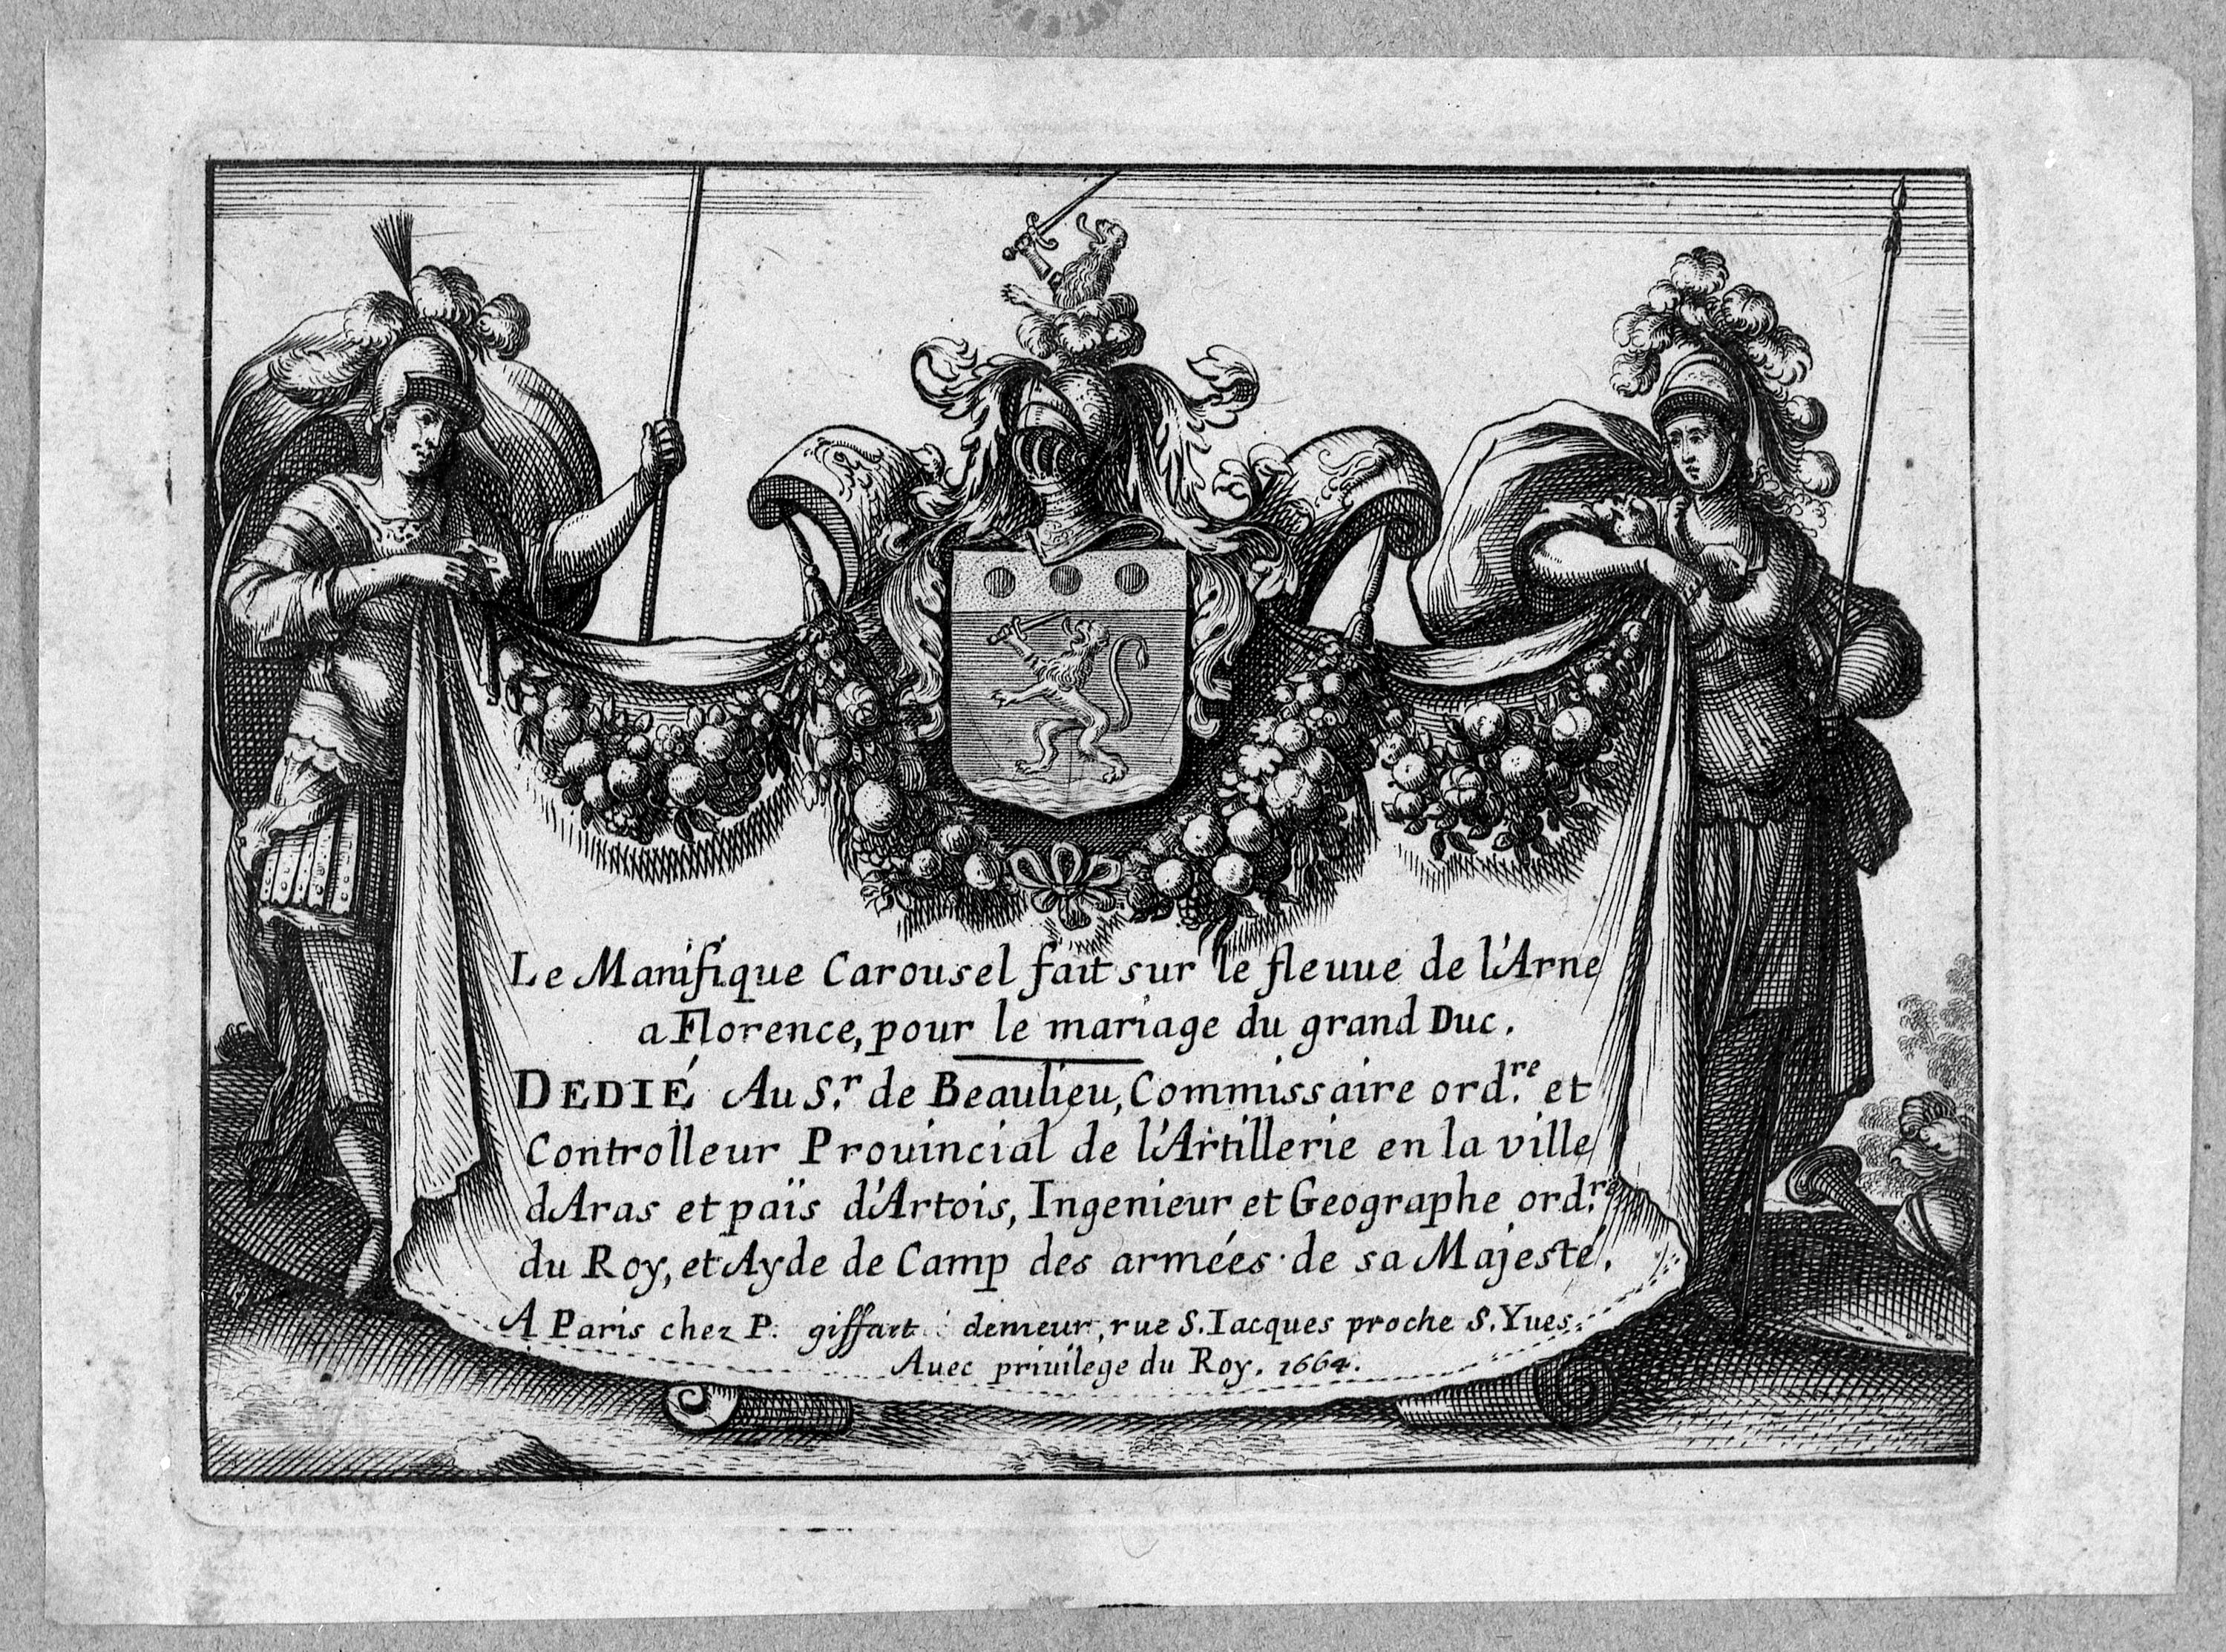 Le Manifique Carousel fait sur le fleuue de l'Arne
a Florence, pour le mariage du grand Duc.
DEDIÉ Au S.r de Beaulieu, Commissaire ord.re et
Controlleur Prouincial de l'Artillerie en la ville
d'Aras et païs d'Artois, Ingenieur et Geographe ord.re
du Roy, et Ayde de Camp des armées de sa Majesté.
A Paris chez P. giffart demeur, rue S. Iacques proche S. Yues.
Auec priuilege du Roy. 1664.